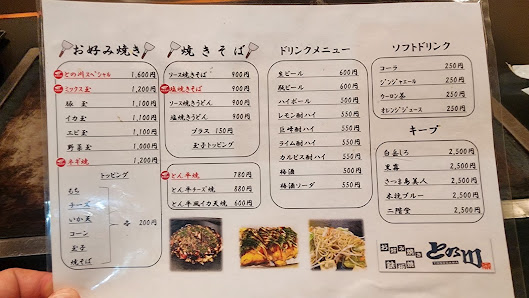 お好み焼き
との川スペシャル 1,600円
ミックス玉 1,200円
豚玉 1,100円
イカ玉 1,100円
エビ玉 1,100円
野菜玉 1,000円
ネギ焼 1,200円
トッピング
もち
チーズ
いか天
コーン
玉子
焼そば
各 200円
焼きそば
ソース焼きそば 900円
塩焼きそば 900円
ソース焼きうどん 900円
塩焼きうどん 900円
プラス 150円
玉子トッピング
とん平焼 780円
とん平チーズ焼 880円
とん平風イカ天焼 600円
ドリンクメニュー
生ビール 600円
瓶ビール 600円
ハイボール 550円
レモン酎ハイ 550円
巨峰酎ハイ 550円
ライム酎ハイ 550円
カルピス酎ハイ 550円
梅酒 550円
梅酒ソーダ 550円
ソフトドリンク
コーラ 250円
ジンジャエール 250円
ウーロン茶 250円
オレンジジュース 250円
キープ
白岳しろ 2,500円
黒霧 2,500円
さつま島美人 2,500円
木挽ブルー 2,500円
二階堂 2,500円
お好み焼き
鉄板焼
との川